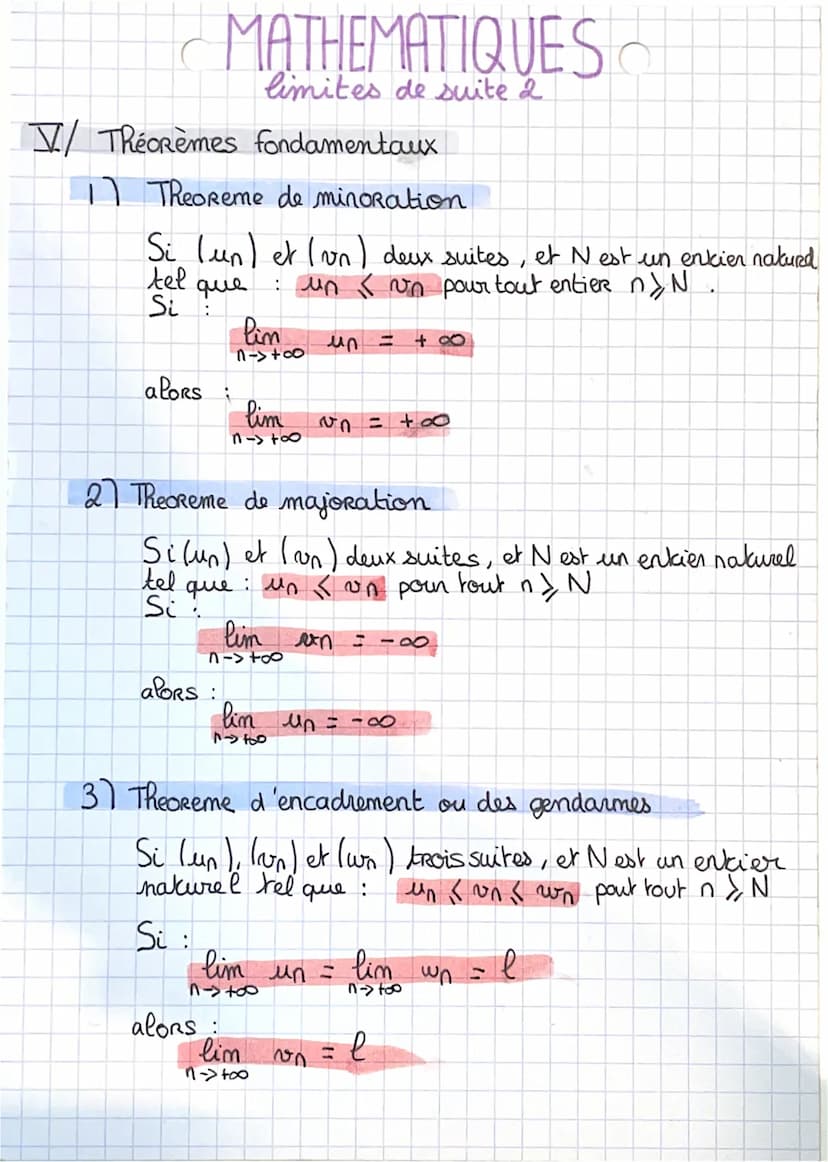 MATHEMATIQUES
limites de suite 2
V/ Théorèmes fondamentaux
1) Theoreme de minoration
Si (un) et (vn) deux suites, et N est un entier naturel
tel que : un ≤ vn pour tout entier n ≥ N .
Si :
lim un = + ∞
n->+∞
alors :
lim vn = +∞
n->+∞
2) Theoreme de majoration
Si (un) et (vn) deux suites, et N est un entier naturel
tel que : un ≤ vn pour tout n ≥ N
Si :
lim vn = -∞
n->+∞
alors :
lim un = -∞
n->+∞
3) Theoreme d'encadrement ou des gendarmes
Si (un), (vn) et (wn) trois suites, et N est un entier
naturel tel que : un ≤ vn ≤ wn pour tout n ≥ N
Si :
lim un = lim wn = l
n->+∞ n->+∞
alors :
lim vn = l
n->+∞